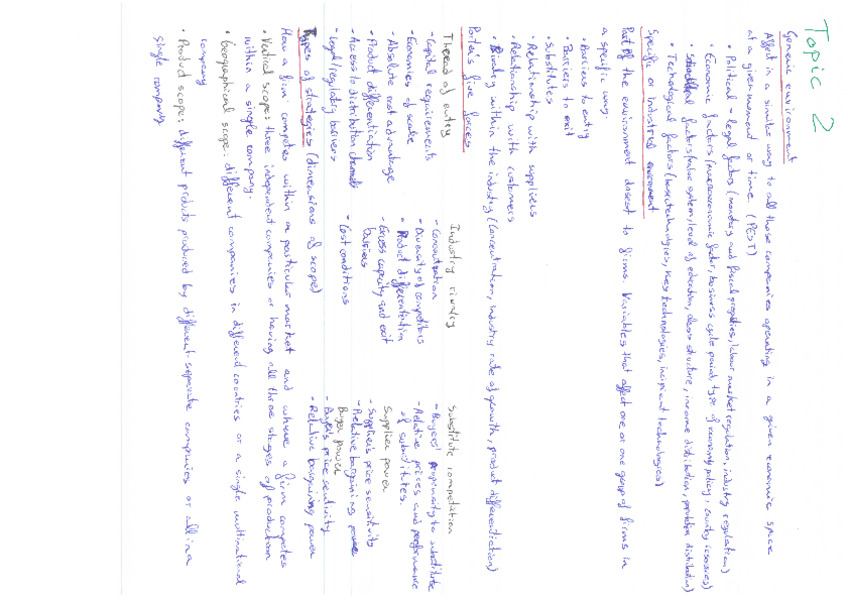 Topic 2
Generic environment
Affect in a similar way to all those companies operating in a given economic space
at a given moment or time (PEST)
• Political - legal factors (monetary and fiscal properties, labour market regulation, industry regulation)
• Economic factors (macroeconomic factor, business cycle period, type of economy policy, country resources)
• factors (value system, level of education, class structure, income distribution, population distribution)
• Technological factors (base technologies, key technologies, incipient technologies)
Specific or industrial environment
Part of the environment closest to firms. Variables that affect one or one group of firms in
a specific way.
• Barriers to entry
• Barriers to exit
• Substitutes
• Relationship with suppliers
• Relationship with customers
• Rivalry within the industry (concentration, industry rate of growth, product differentiation)
Porter's five forces
Thread of entry
- Capital requirements
- Economies of scale
- Absolute cost advantage
- Product differentiation
- Access to distribution channels
- Legal/regulatory barriers
Industry rivalry
- Concentration
- Diversity of competitors
• Product differentiation
- Excess capacity and exit
barriers
- Cost conditions
Substitute competation
- Buyers' propensity to substitute
- Relative prices and performance
of substitutes.
Supplier power
- Supplier's price sensitivity
- Relative bargaining power
Buyer power
- Buyer's price sensitivity
- Relative bargaining power
Types of strategies (dimensions of scope)
How a firm competes within a particular market and where a firm competes
• Vertical scope: three independent companies or having all three stages of production
within a single company.
• Geographical scope: different companies in different countries or a single multinational
company
• Product scope: different products produced by different separate companies or all in a
single company.